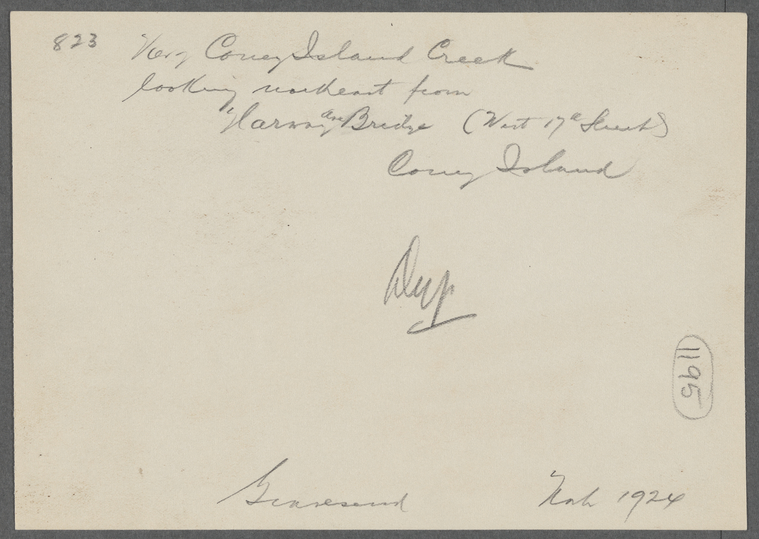 823 Coney Island Creek
looking northeast from
Harway Ave Bridge (West 17th Street)
Coney Island
Dup
1195
Gravesend 1924